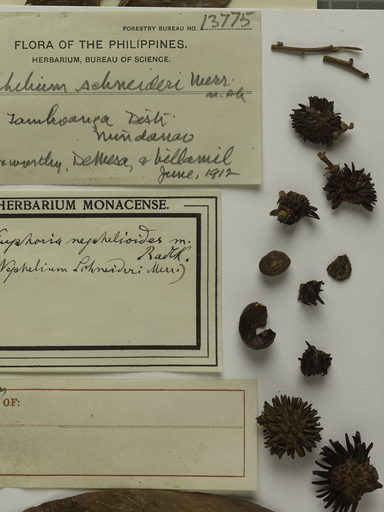 FORESTRY BUREAU NO. 13775
FLORA OF THE PHILIPPINES.
HERBARIUM, BUREAU OF SCIENCE.
schneideri Merr.
Zamboanga Distr.
Mindanao
DeMesa, & Villamil
June, 1912
HERBARIUM MONACENSE.
Euphoria nephelioides m.
Radlk.
Nephelium Schneideri Merr.)
OF: